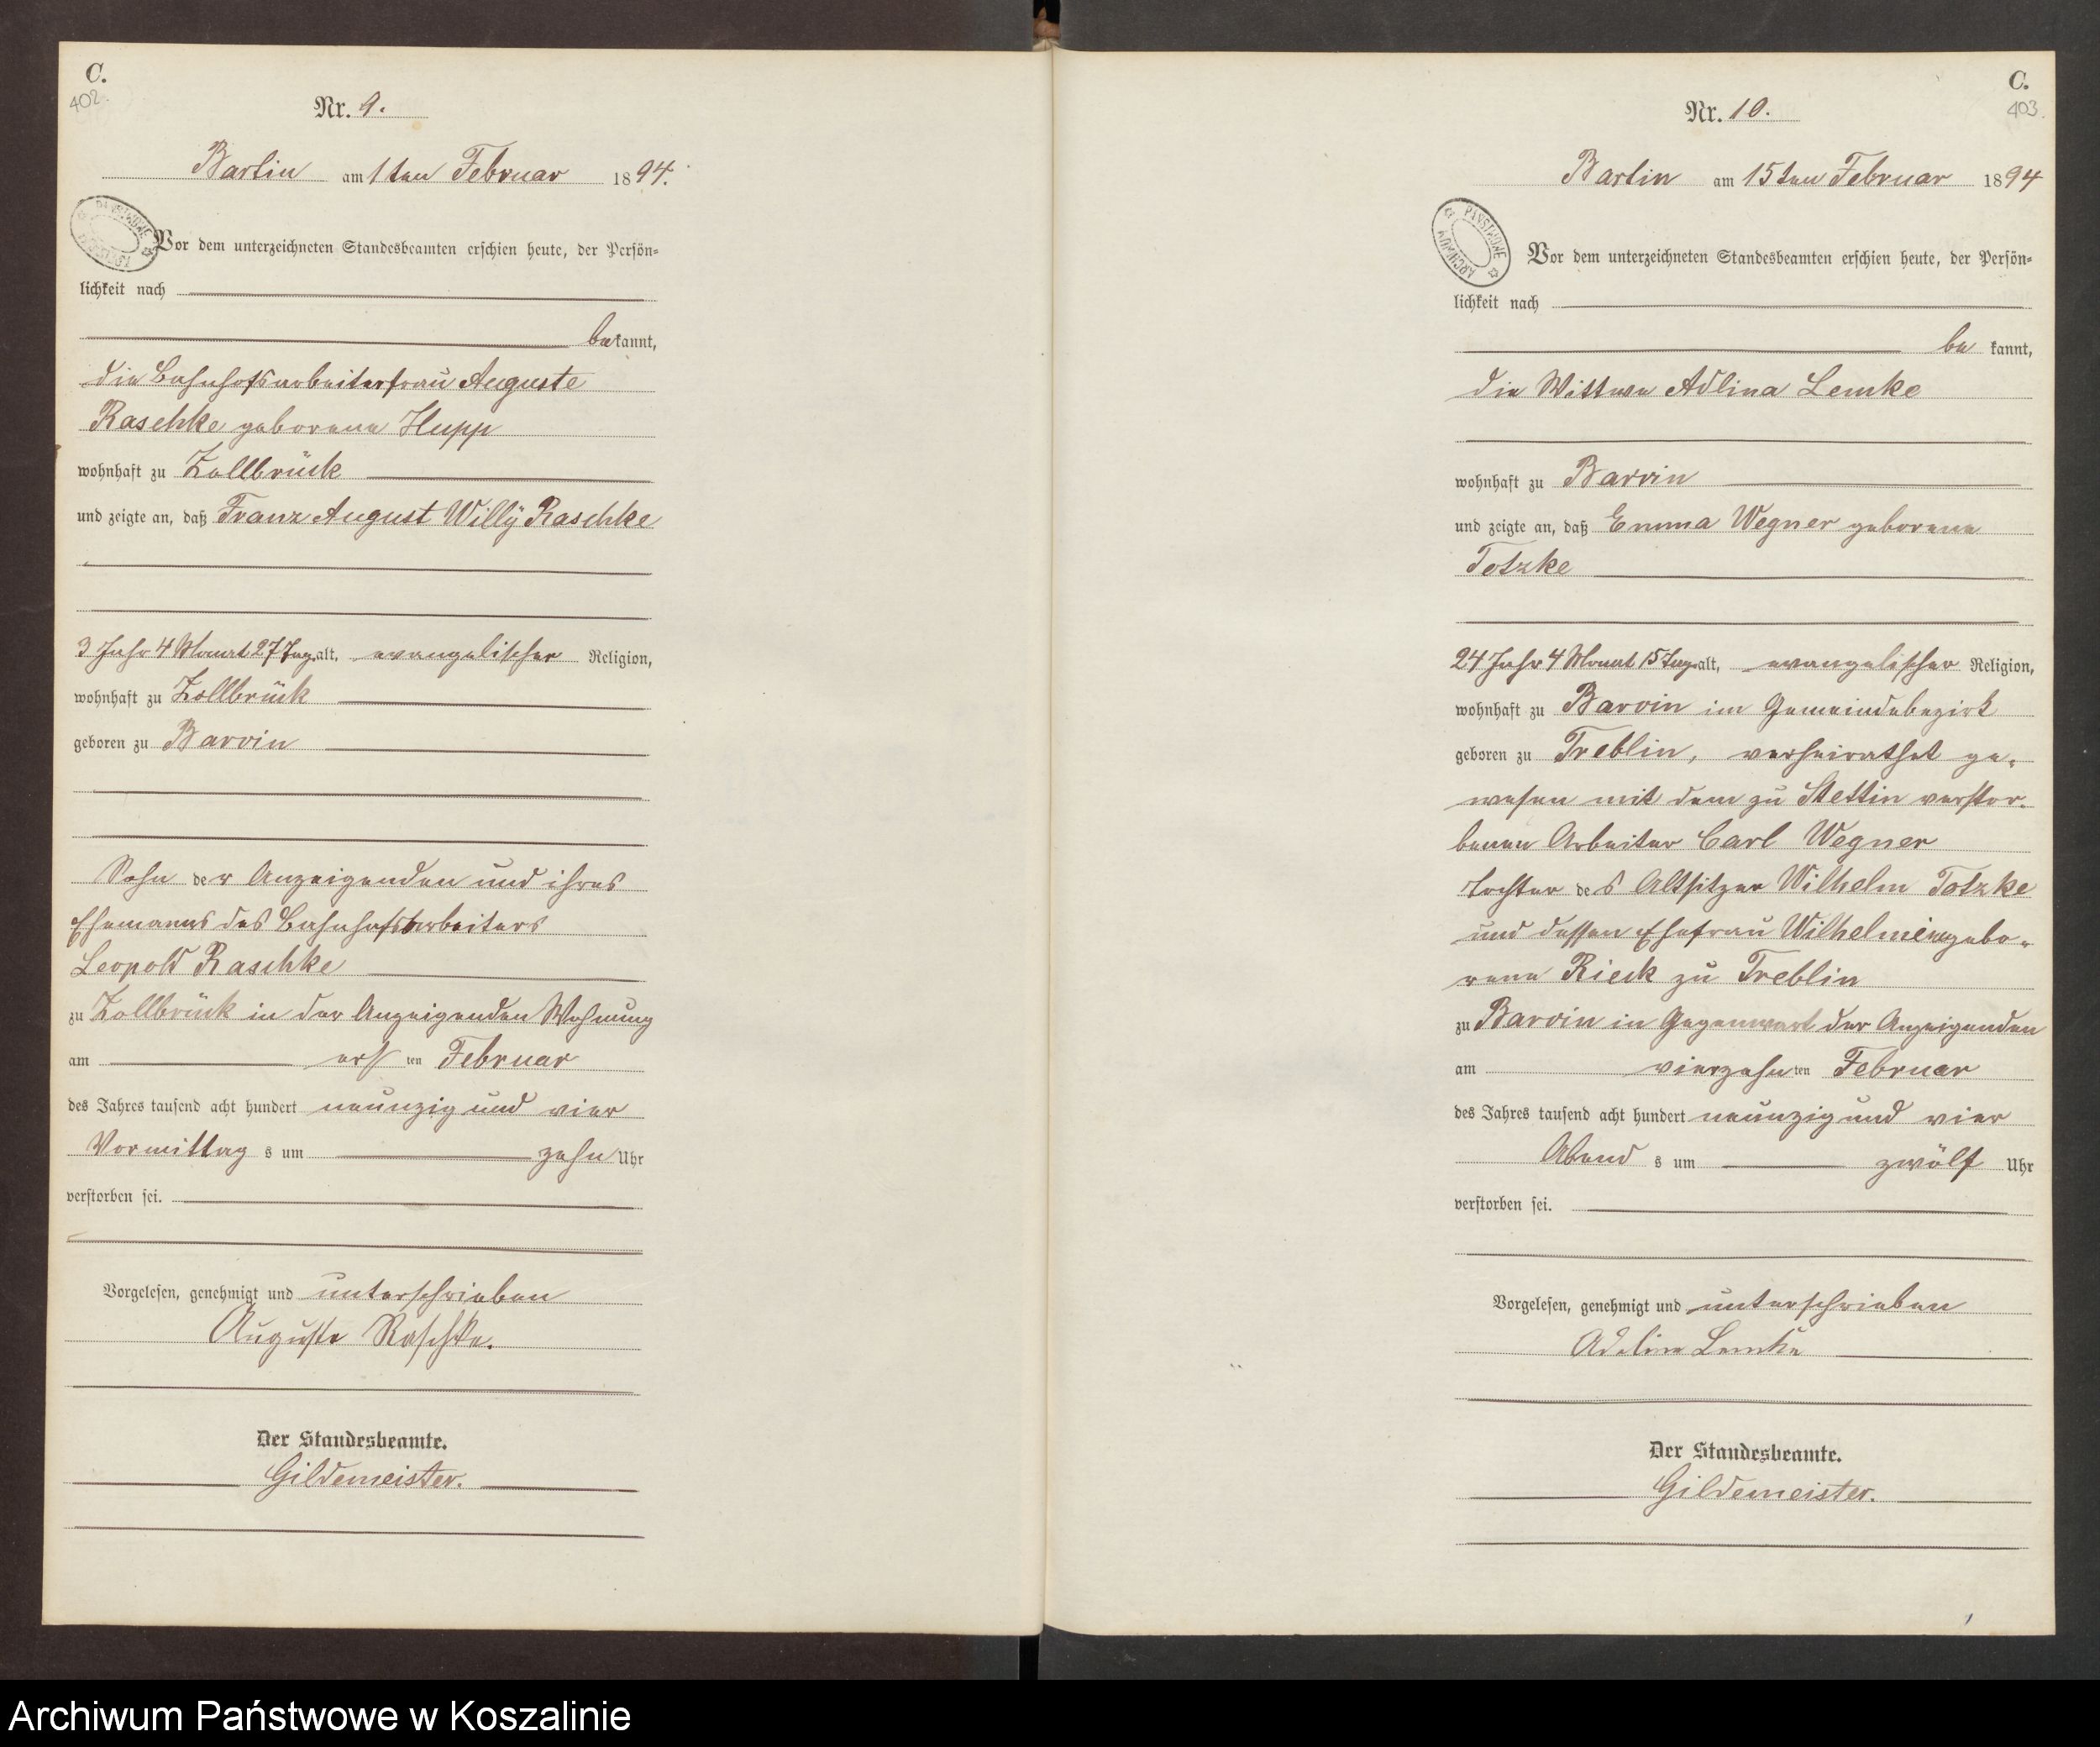 C.
402.
Nr. 9.
Bartin am 1ten Februar 1894.
Vor dem unterzeichneten Standesbeamten erschien heute, der Persön-
lichkeit nach
bekannt,
die Bahnhofsarbeiterfrau Auguste
Raschke geborene Hupp
wohnhaft zu Zollbrück
und zeigte an, daß Franz August Willÿ Raschke
3 Jahr 4 Monat 27 Tag alt, evangelischer Religion,
wohnhaft zu Zollbrück
geboren zu Barvin
Sohn der Anzeigenden und ihres
Ehemanns des Bahnhofsarbeiters
Leopold Raschke
zu Zollbrück in der Anzeigenden Wohnung
am ersten Februar
des Jahres tausend acht hundert neunzig und vier
Vormittags um zehn Uhr
verstorben sei.
Vorgelesen, genehmigt und unterschrieben
Auguste Raschke.
Der Standesbeamte.
Gildemeister.
C.
403.
Nr. 10.
Bartin am 15ten Februar 1894
PAŃSTWOWE ARCHIWUM
Vor dem unterzeichneten Standesbeamten erschien heute, der Persön-
lichkeit nach
be kannt,
die Wittwe Adlina Lemke
wohnhaft zu Barvin
und zeigte an, daß Emma Wegner geborene
Totzke
24 Jahr 4 Monat 15 Tage alt, evangelischer Religion,
wohnhaft zu Barvin im Gemeindebezirk
geboren zu Treblin, verheirathet ge-
wesen mit dem zu Stettin verstor-
benen Arbeiter Carl Wegner
Tochter des Altsitzer Wilhelm Totzke
und dessen Ehefrau Wilhelmine gebo-
rene Rieck zu Treblin
zu Barvin in Gegenwart der Anzeigenden
am vierzehnten Februar
des Jahres tausend acht hundert neunzig und vier
Abends um zwölf Uhr
verstorben sei.
Vorgelesen, genehmigt und unterschrieben
Adeline Lemke
Der Standesbeamte.
Gildemeister.
Archiwum Państwowe w Koszalinie